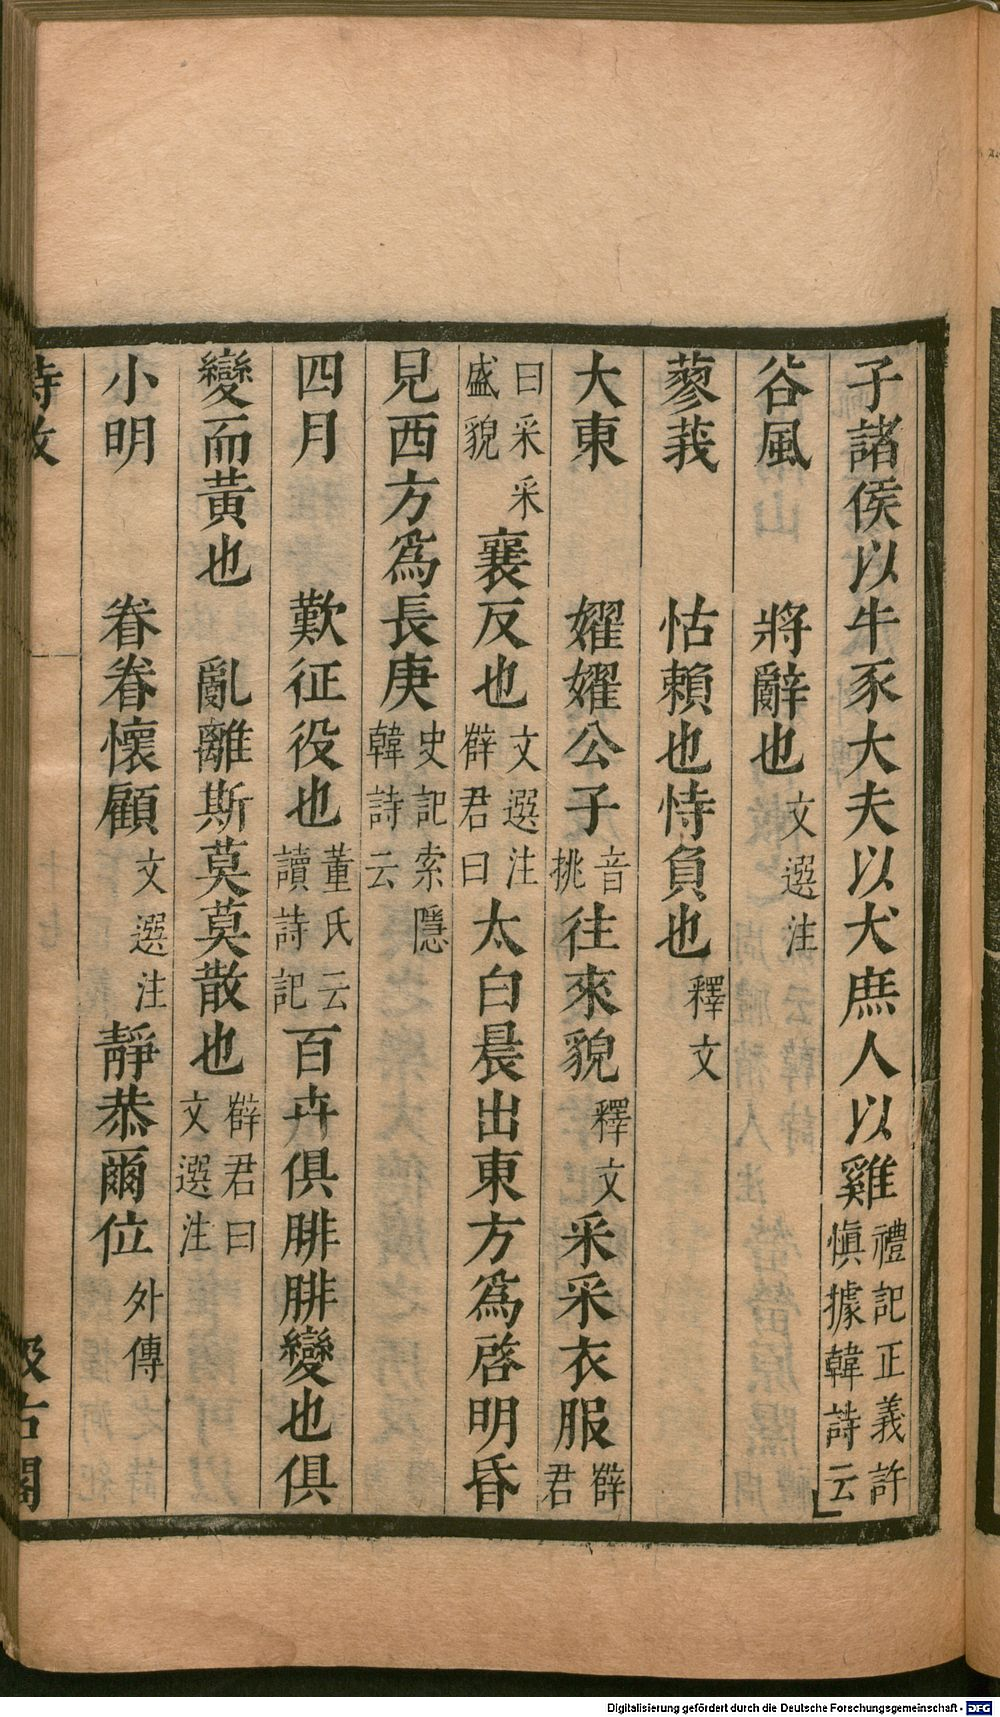 子諸侯以牛豕大夫以犬庶人以雞禮記正義許慎據韓詩云
谷風　將辭也文選注
蓼莪　怙賴也恃負也釋文
大東　嬥嬥公子音挑往來貌釋文采采衣服薛君
曰采采盛貌襄反也文選注薛君曰太白晨出東方為啓明昏
見西方為長庚史記索隱韓詩云
四月　歎征役也董氏云讀詩記百卉俱腓腓變也俱
變而黃也　亂離斯莫莫散也薛君曰文選注
小明　眷眷懷顧文選注靜恭爾位外傳
詩攷
汲古閣
Digitalisierung gefördert durch die Deutsche Forschungsgemeinschaft - DFG